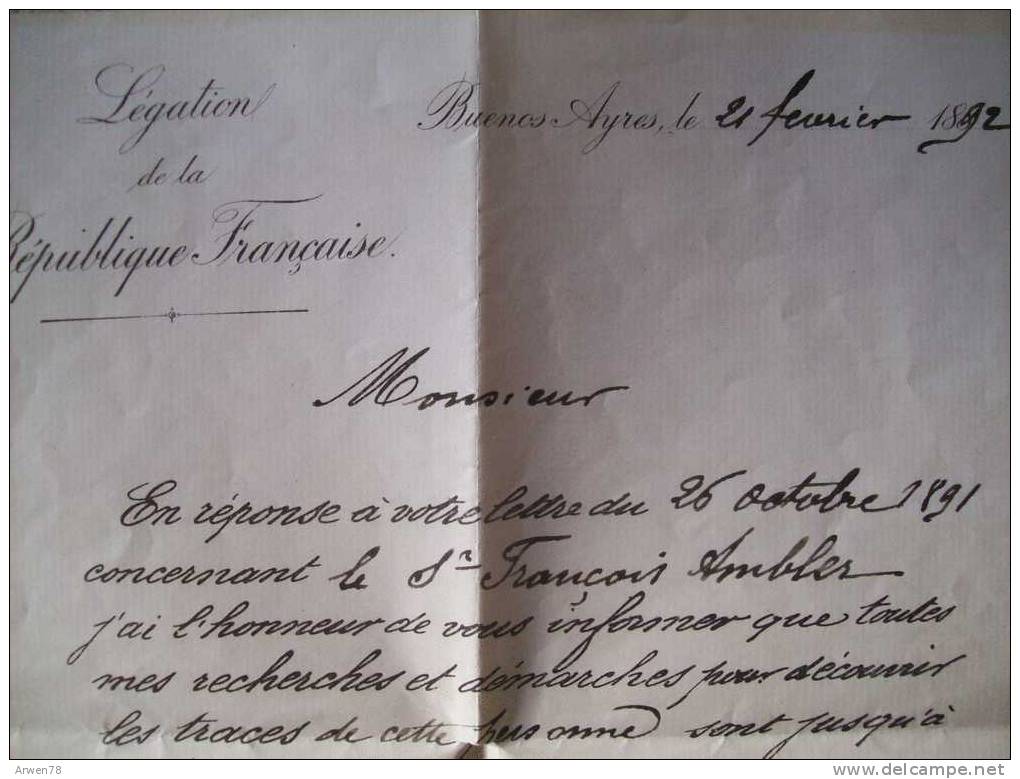 Légation
de la
République Française.
Buenos Ayres, le 21 fevrier 1892
Monsieur
En réponse à votre lettre du 26 octobre 1891
concernant le Sr François Ambler
j'ai l'honneur de vous informer que toutes
mes recherches et démarches pour découvrir
les traces de cette personne sont jusqu'à
Arwen78
www.delcampe.net